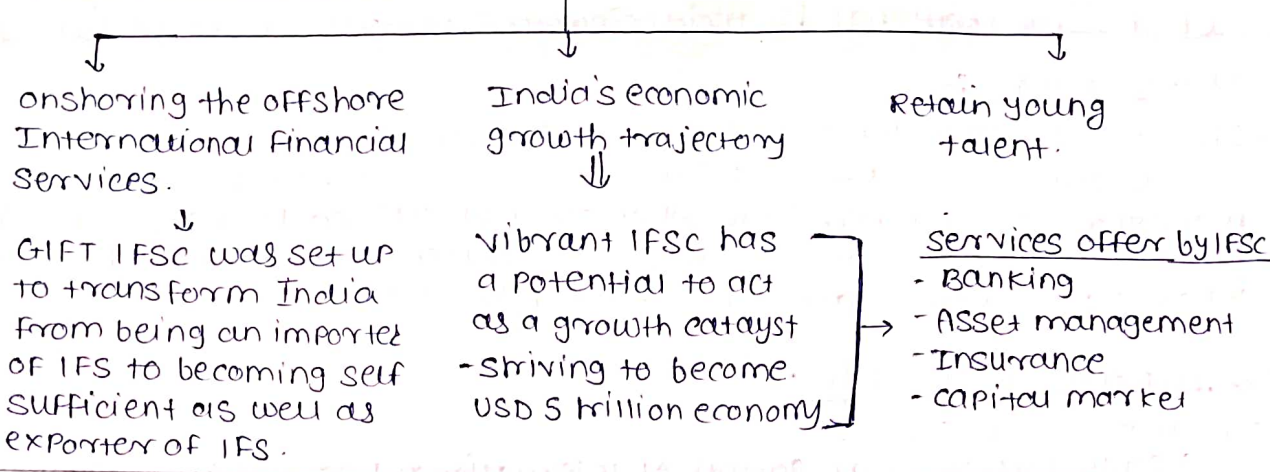 onshoring the offshore
International Financial
Services.
GIFT IFSC was set up
to transform India
from being an importer
of IFS to becoming self
sufficient as well as
exporter of IFS.
India's economic
growth trajectory
vibrant IFSC has
a potential to act
as a growth catayst
- Striving to become.
USD 5 trillion economy
Retain young
talent.
Services offer by IFSC
- Banking
- Asset management
- Insurance
- capital market